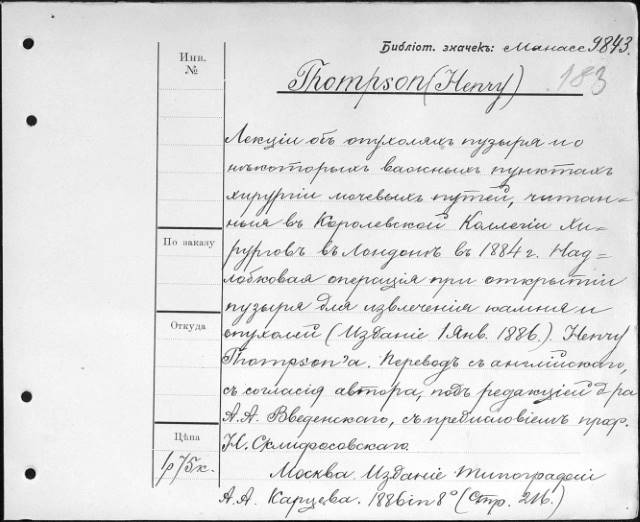 Библіот. значекъ: Манасс 9843.
183
Инв. №
Thompson (Henry)
Лекціи объ опухоляхъ пузыря и о
нѣкоторыхъ важныхъ пунктахъ
хирургіи мочевыхъ путей, читан=
ныя въ Королевской Коллегіи Хи=
По заказу
рурговъ въ Лондонѣ въ 1884 г. Над=
лобковая операція при открытіи
пузыря для извлеченія камня и
Откуда
опухолей (Изданіе 1 Янв. 1886.). Henry
Thompson'а. Переводъ съ англійскаго,
съ согласія автора, подъ редакціей д-ра
А.А. Введенскаго, съ предисловіемъ проф.
Цѣна
Н. Склифосовскаго.
1р 75к.
Москва. Изданіе типографіи
А.А. Карцева. 1886 in 8° (Стр. 216.)